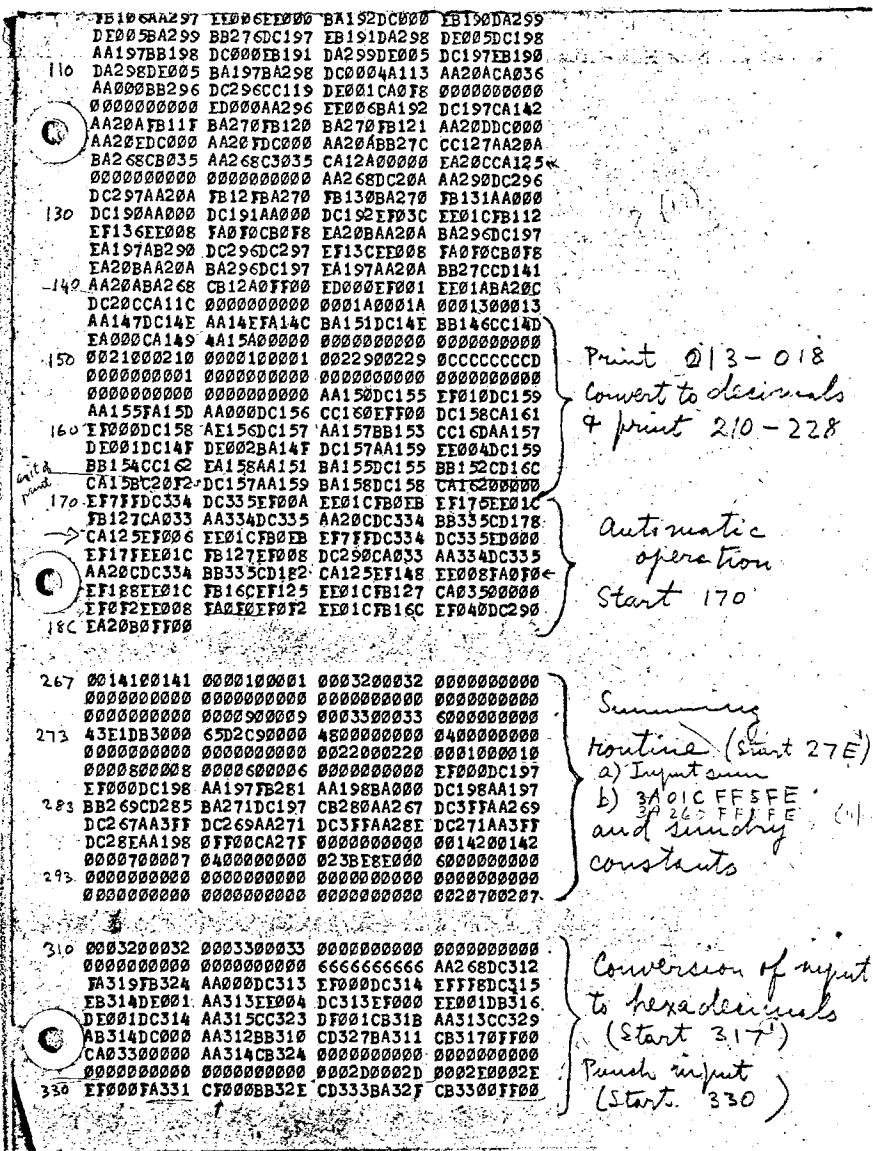 FB106AA297 EE006EE000 BA192DC000 EB190DA299
DE005BA299 BB276DC197 EB191DA298 DE005DC198
AA197BB198 DC000EB191 DA299DE005 DC197EB190
110 DA298DE005 BA197BA298 DC0004A113 AA20ACA036
AA000BB296 DC296CC119 DE001CA0F8 0000000000
0000000000 ED000AA296 EE006BA192 DC197CA142
AA20AFB11F BA270FB120 BA270FB121 AA20DDC000
AA20EDC000 AA20FDC000 AA20ABB27C CC127AA20A
BA268CB035 AA268C3035 CA12A00000 EA20CCA125
0000000000 0000000000 AA268DC20A AA290DC296
DC297AA20A FB12FBA270 FB130BA270 FB131AA000
130 DC190AA000 DC191AA000 DC192EF03C EE01CFB112
EF136EE008 FA0F0CB0F8 EA20BAA20A BA296DC197
EA197AB290 DC296DC297 EF13CEE008 FA0F0CB0F8
EA20BAA20A BA296DC197 EA197AA20A BB27CCD141
140 AA20ABA268 CB12A0FF00 ED000EF001 EE01ABA20C
DC20CCA11C 0000000000 0001A0001A 0001300013
AA147DC14E AA14EFA14C BA151DC14E BB146CC14D
EA000CA149 4A15A00000 0000000000 0000000000
150 0021000210 0000100001 0022900229 0CCCCCCCCD
0000000001 0000000000 0000000000 0000000000
0000000000 0000000000 AA150DC155 EF010DC159
AA155FA15D AA000DC156 CC160EFF00 DC158CA161
160 EF000DC158 AE156DC157 AA157BB153 CC16DAA157
DE001DC14F DE002BA14F DC157AA159 EE004DC159
BB154CC162 EA158AA151 BA155DC155 BB152CD16C
CA15BC20F2 DC157AA159 BA158DC158 CA16200000
Print 013-018
Convert to decimals
& print 210-228
exit & print
170 EF7FFDC334 DC335EF00A EE01CFB0EB EF175EE01C
FB127CA033 AA334DC335 AA20CDC334 BB335CD178
CA125EF006 EE01CFB0EB EF7FFDC334 DC335ED000
EF17FEE01C FB127EF008 DC290CA033 AA334DC335
AA20CDC334 BB335CD182 CA125EF148 EE008FA0F0
EF188EE01C FB16CEF125 EE01CFB127 CA03500000
EF0F2EE008 FA0F0EF0F2 EE01CFB16C EF040DC290
18C EA20B0FF00
automatic
operation
Start 170
267 0014100141 0000100001 0003200032 0000000000
0000000000 0000000000 0000000000 0000000000
0000000000 0000900009 0003300033 6000000000
273 43E1DB3000 65D2C90000 4800000000 0400000000
0000000000 0000000000 0022000220 0001000010
0000800008 0000600006 0000000000 EF000DC197
EF000DC198 AA197FB281 AA198BA000 DC198AA197
283 BB269CD285 BA271DC197 CB280AA267 DC3FFAA269
DC267AA3FF DC269AA271 DC3FFAA28E DC271AA3FF
DC28EAA198 0FF00CA27F 0000000000 0014200142
0000700007 0400000000 023BE8E000 6000000000
293 0000000000 0000000000 0000000000 0000000000
0000000000 0000000000 0000000000 0020700207
Summing
routine (Start 27E)
a) Input sum
b) 3A01C FF5FE
and sundry
constants
310 0003200032 0003300033 0000000000 0000000000
0000000000 0000000000 6666666666 AA268DC312
FA319FB324 AA000DC313 EF000DC314 EFFF8DC315
EB314DE001 AA313EE004 DC313EF000 EE001DB316
DE001DC314 AA315CC323 DF001CB31B AA313CC329
AB314DC000 AA312BB310 CD327BA311 CB3170FF00
CA03300000 AA314CB324 0000000000 0000000000
0000000000 0000000000 0002D0002D 0002E0002E
330 EF000FA331 CF000BB32E CD333BA32F CB3300FF00
Conversion of input
to hexadecimals
(Start 317)
Punch input
(Start 330)